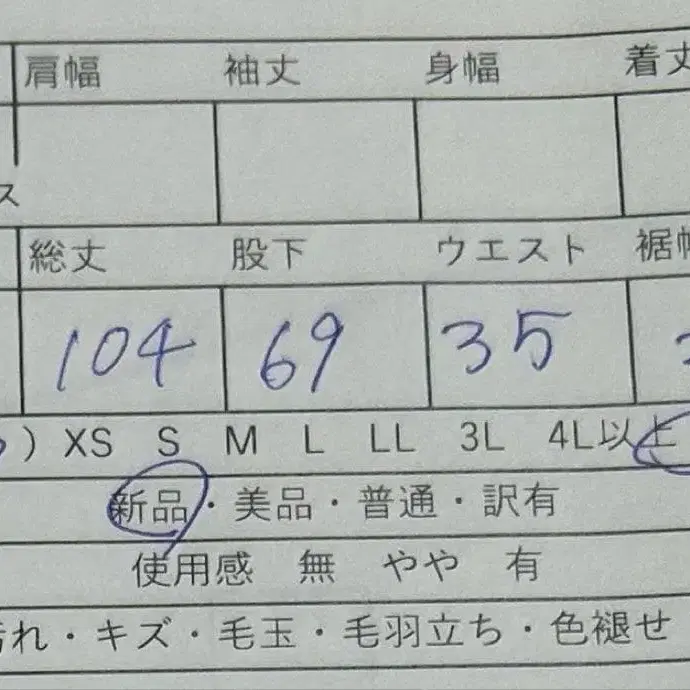 肩幅 袖丈 身幅 着丈
ス
総丈 股下 ウエスト 裾幅
104 69 35
) XS S M L LL 3L 4L以上
新品・美品・普通・訳有
使用感 無 やや 有
汚れ・キズ・毛玉・毛羽立ち・色褪せ